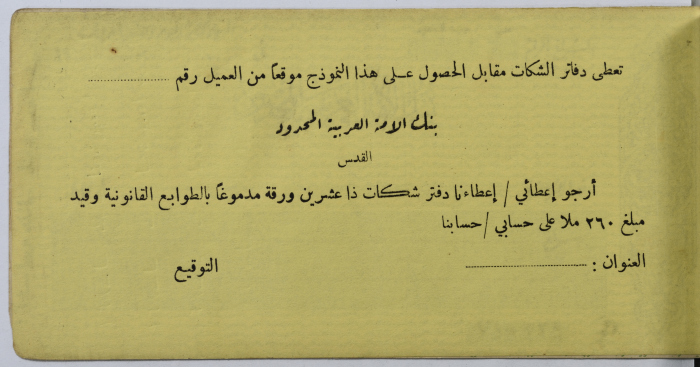 تعطى دفاتر الشكات مقابل الحصول على هذا النموذج موقعاً من العميل رقم ....................
بنك الامة العربية المحدود
القدس
أرجو إعطائي / إعطاءنا دفتر شكات ذا عشرين ورقة مدموغاً بالطوابع القانونية وقيد
مبلغ ٢٦٠ ملا على حسابي / حسابنا
العنوان : .............................. التوقيع